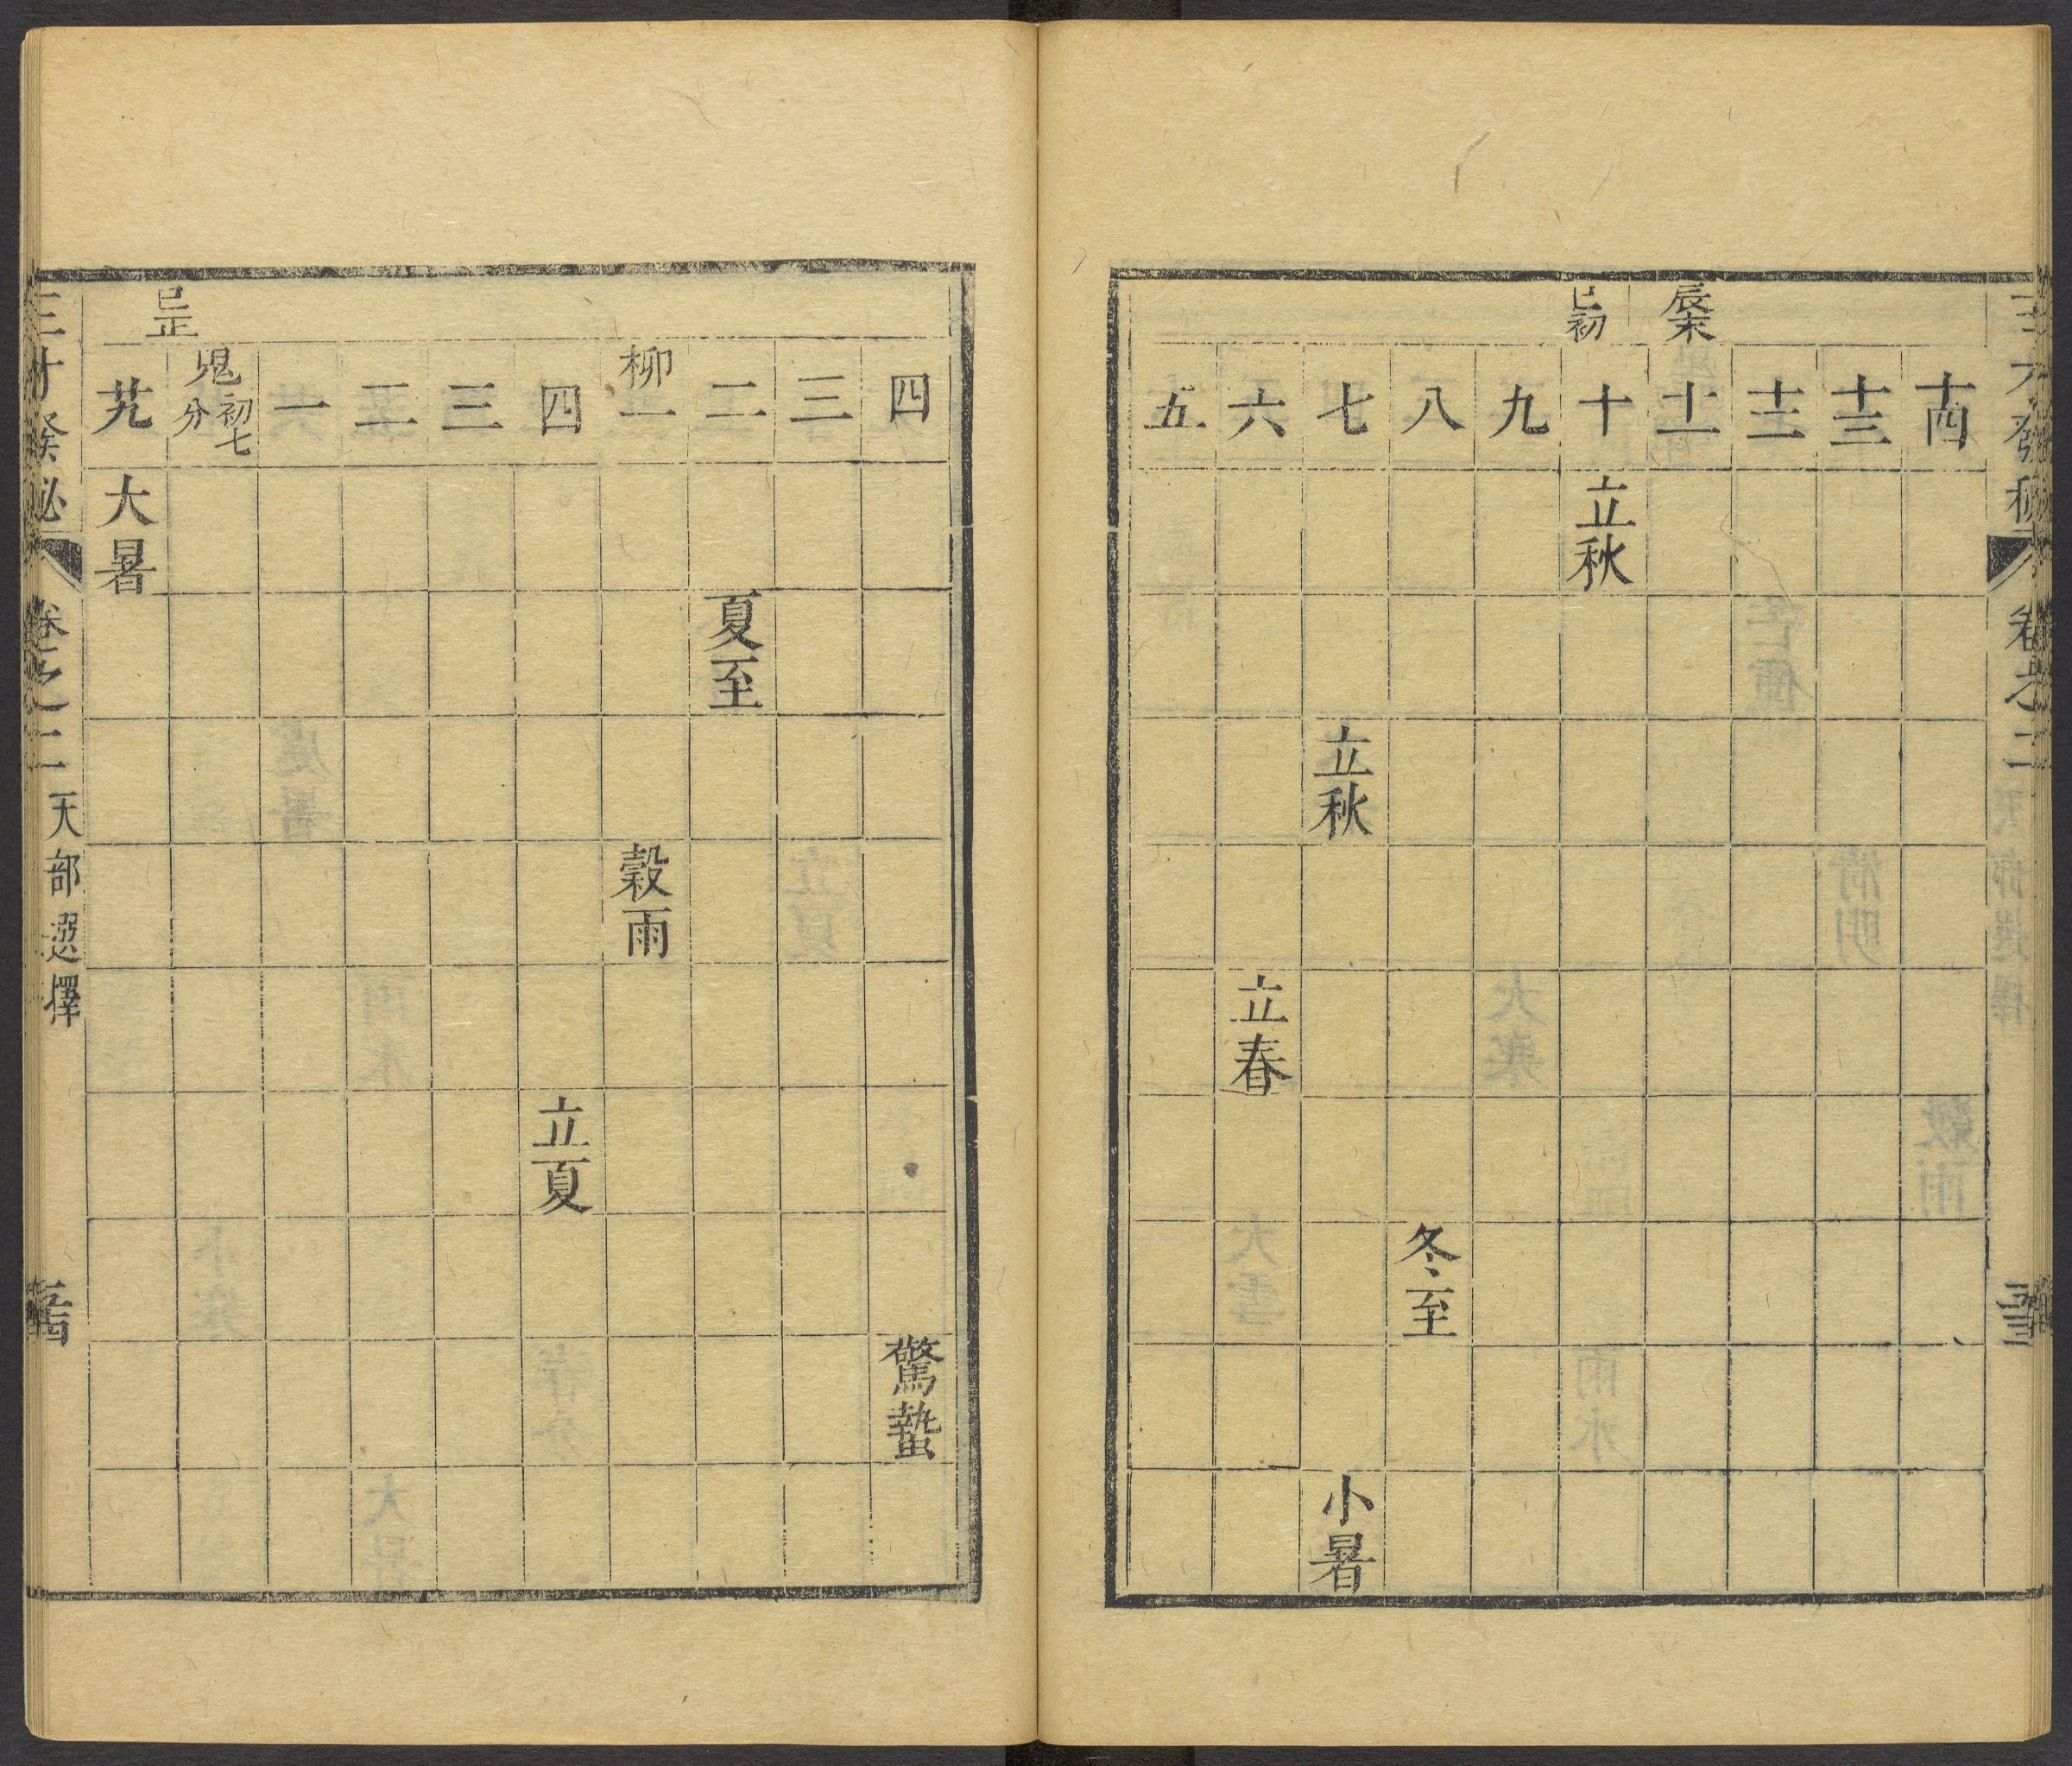 三才發秘
卷之二
辰末
巳初
十四
十三
十二
十一
十
九
八
七
六
五
立秋
立秋
立春
冬至
小暑
四
三
二
柳一
四
三
二
一
鬼初七分
卅九
巳正
驚蟄
夏至
穀雨
立夏
大暑
三才發秘
卷之二
天部選擇
五十四